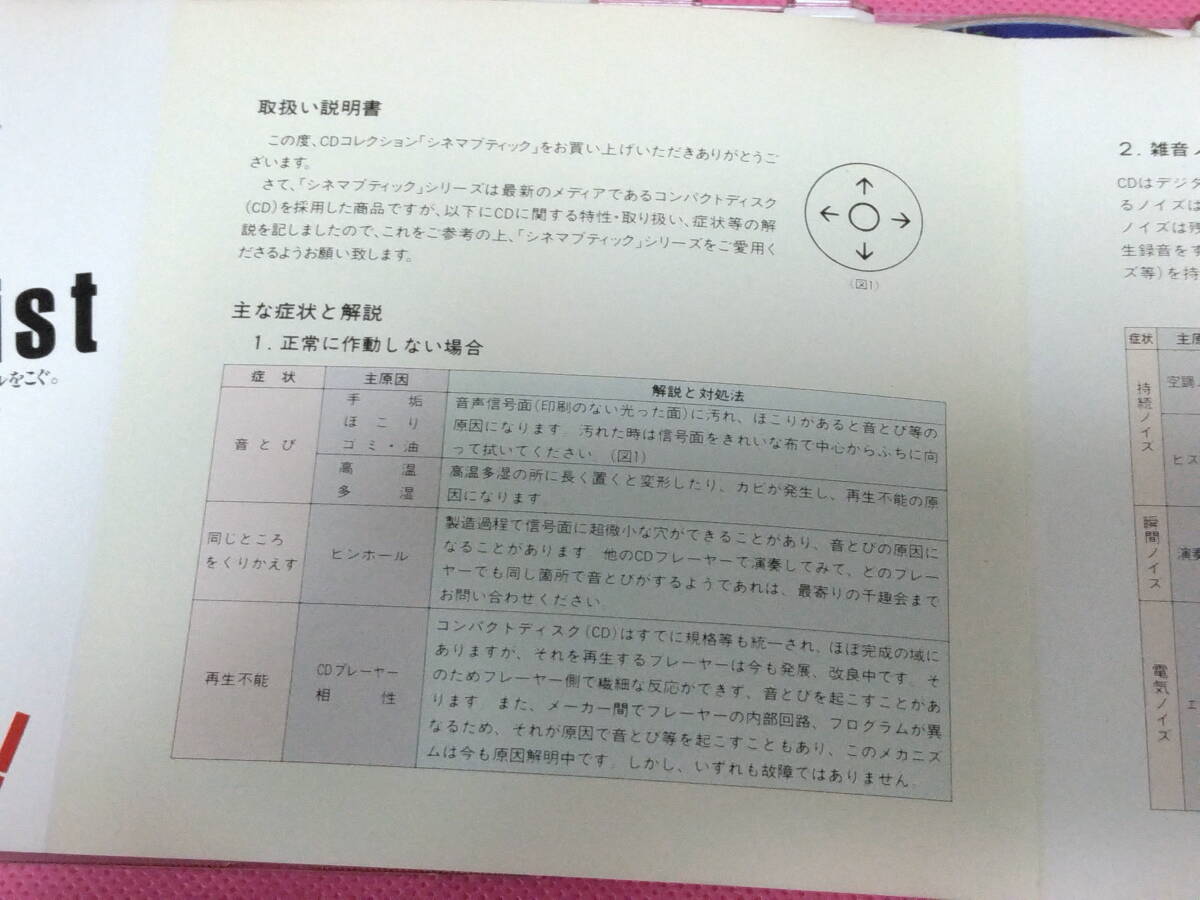 ist
ルをこぐ。
!
取扱い説明書
この度、CDコレクション「シネマブティック」をお買い上げいただきありがとうご
ざいます。
さて、「シネマブティック」シリーズは最新のメディアであるコンパクトディスク
(CD)を採用した商品ですが、以下にCDに関する特性・取り扱い、症状等の解
説を記しましたので、これをご参考の上、「シネマブティック」シリーズをご愛用く
ださるようお願い致します。
(図1)
主な症状と解説
1. 正常に作動しない場合
症状 主原因 解説と対処法
音とび
手垢
ほこり
ゴミ・油
音声信号面(印刷のない光った面)に汚れ、ほこりがあると音とび等の
原因になります。汚れた時は信号面をきれいな布で中心からふちに向
って拭いてください。(図1)
高温
多湿
高温多湿の所に長く置くと変形したり、カビが発生し、再生不能の原
因になります。
同じところ
をくりかえす
ピンホール
製造過程で信号面に超微小な穴ができることがあり、音とびの原因に
なることがあります。他のCDプレーヤーで演奏してみて、どのプレー
ヤーでも同し箇所で音とびがするようであれは、最寄りの千趣会まで
お問い合わせください。
再生不能
CDプレーヤー
相性
コンパクトディスク(CD)はすでに規格等も統一され、ほぼ完成の域に
ありますが、それを再生するプレーヤーは今も発展、改良中です。そ
のためプレーヤー側で繊細な反応ができず、音とびを起こすことがあ
ります。また、メーカー間でプレーヤーの内部回路、プログラムが異
なるため、それが原因で音とび等を起こすこともあり、このメカニズ
ムは今も原因解明中です。しかし、いずれも故障ではありません。
2. 雑音
CDはデジタ
るノイズは
ノイズは残
生録音をす
ズ等)を持
症状 主原
持続ノイズ
空調
ヒス
瞬間ノイズ
演奏
電気ノイズ
エ